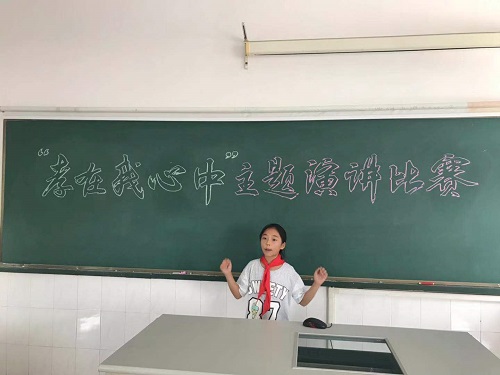 “孝在我心中”主题演讲比赛
87